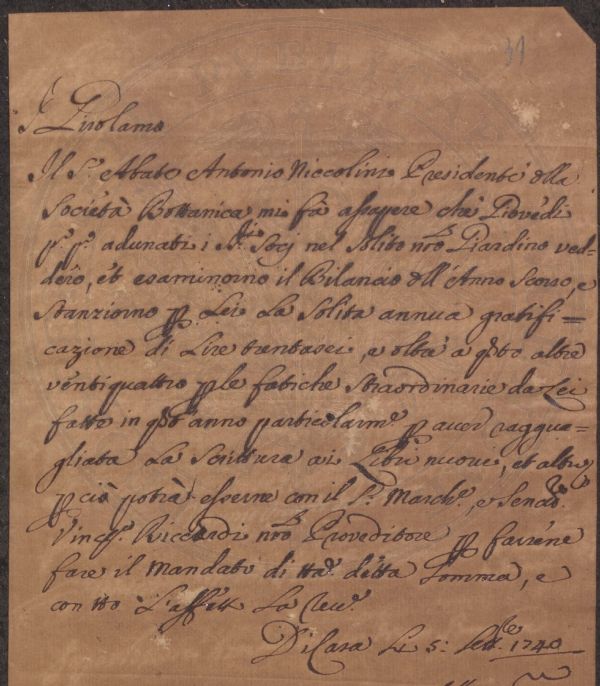 31
S.r Girolamo
Il S.r Abate Antonio Niccolini Presidente della
Società Bottanica mi fà assapere che Giovedì
p.o p.o adunati i SS.ri Socj nel Solito nro Giardino ved-
dero, et esaminorno il Bilancio dell'Anno Scorso, e
Stanziorno p Lei La Solita annua gratifi=
cazione di Lire trentasei, e oltre a qsto altre
ventiquattro p le fatiche Straordinarie da Lei
fatte in qsto anno particolarm.e p aver raggua=
gliata La Scrittura ai Libri nuovi, et altro
p ciò potrà esserne con il S.r March.e, e Senat.re
Vinc.o Riccardi nro Proveditore p farsene
fare il Mandato di tta detta Somma, e
con tto L'affetto La river.o
Di Casa Li 5: Sett.re 1740